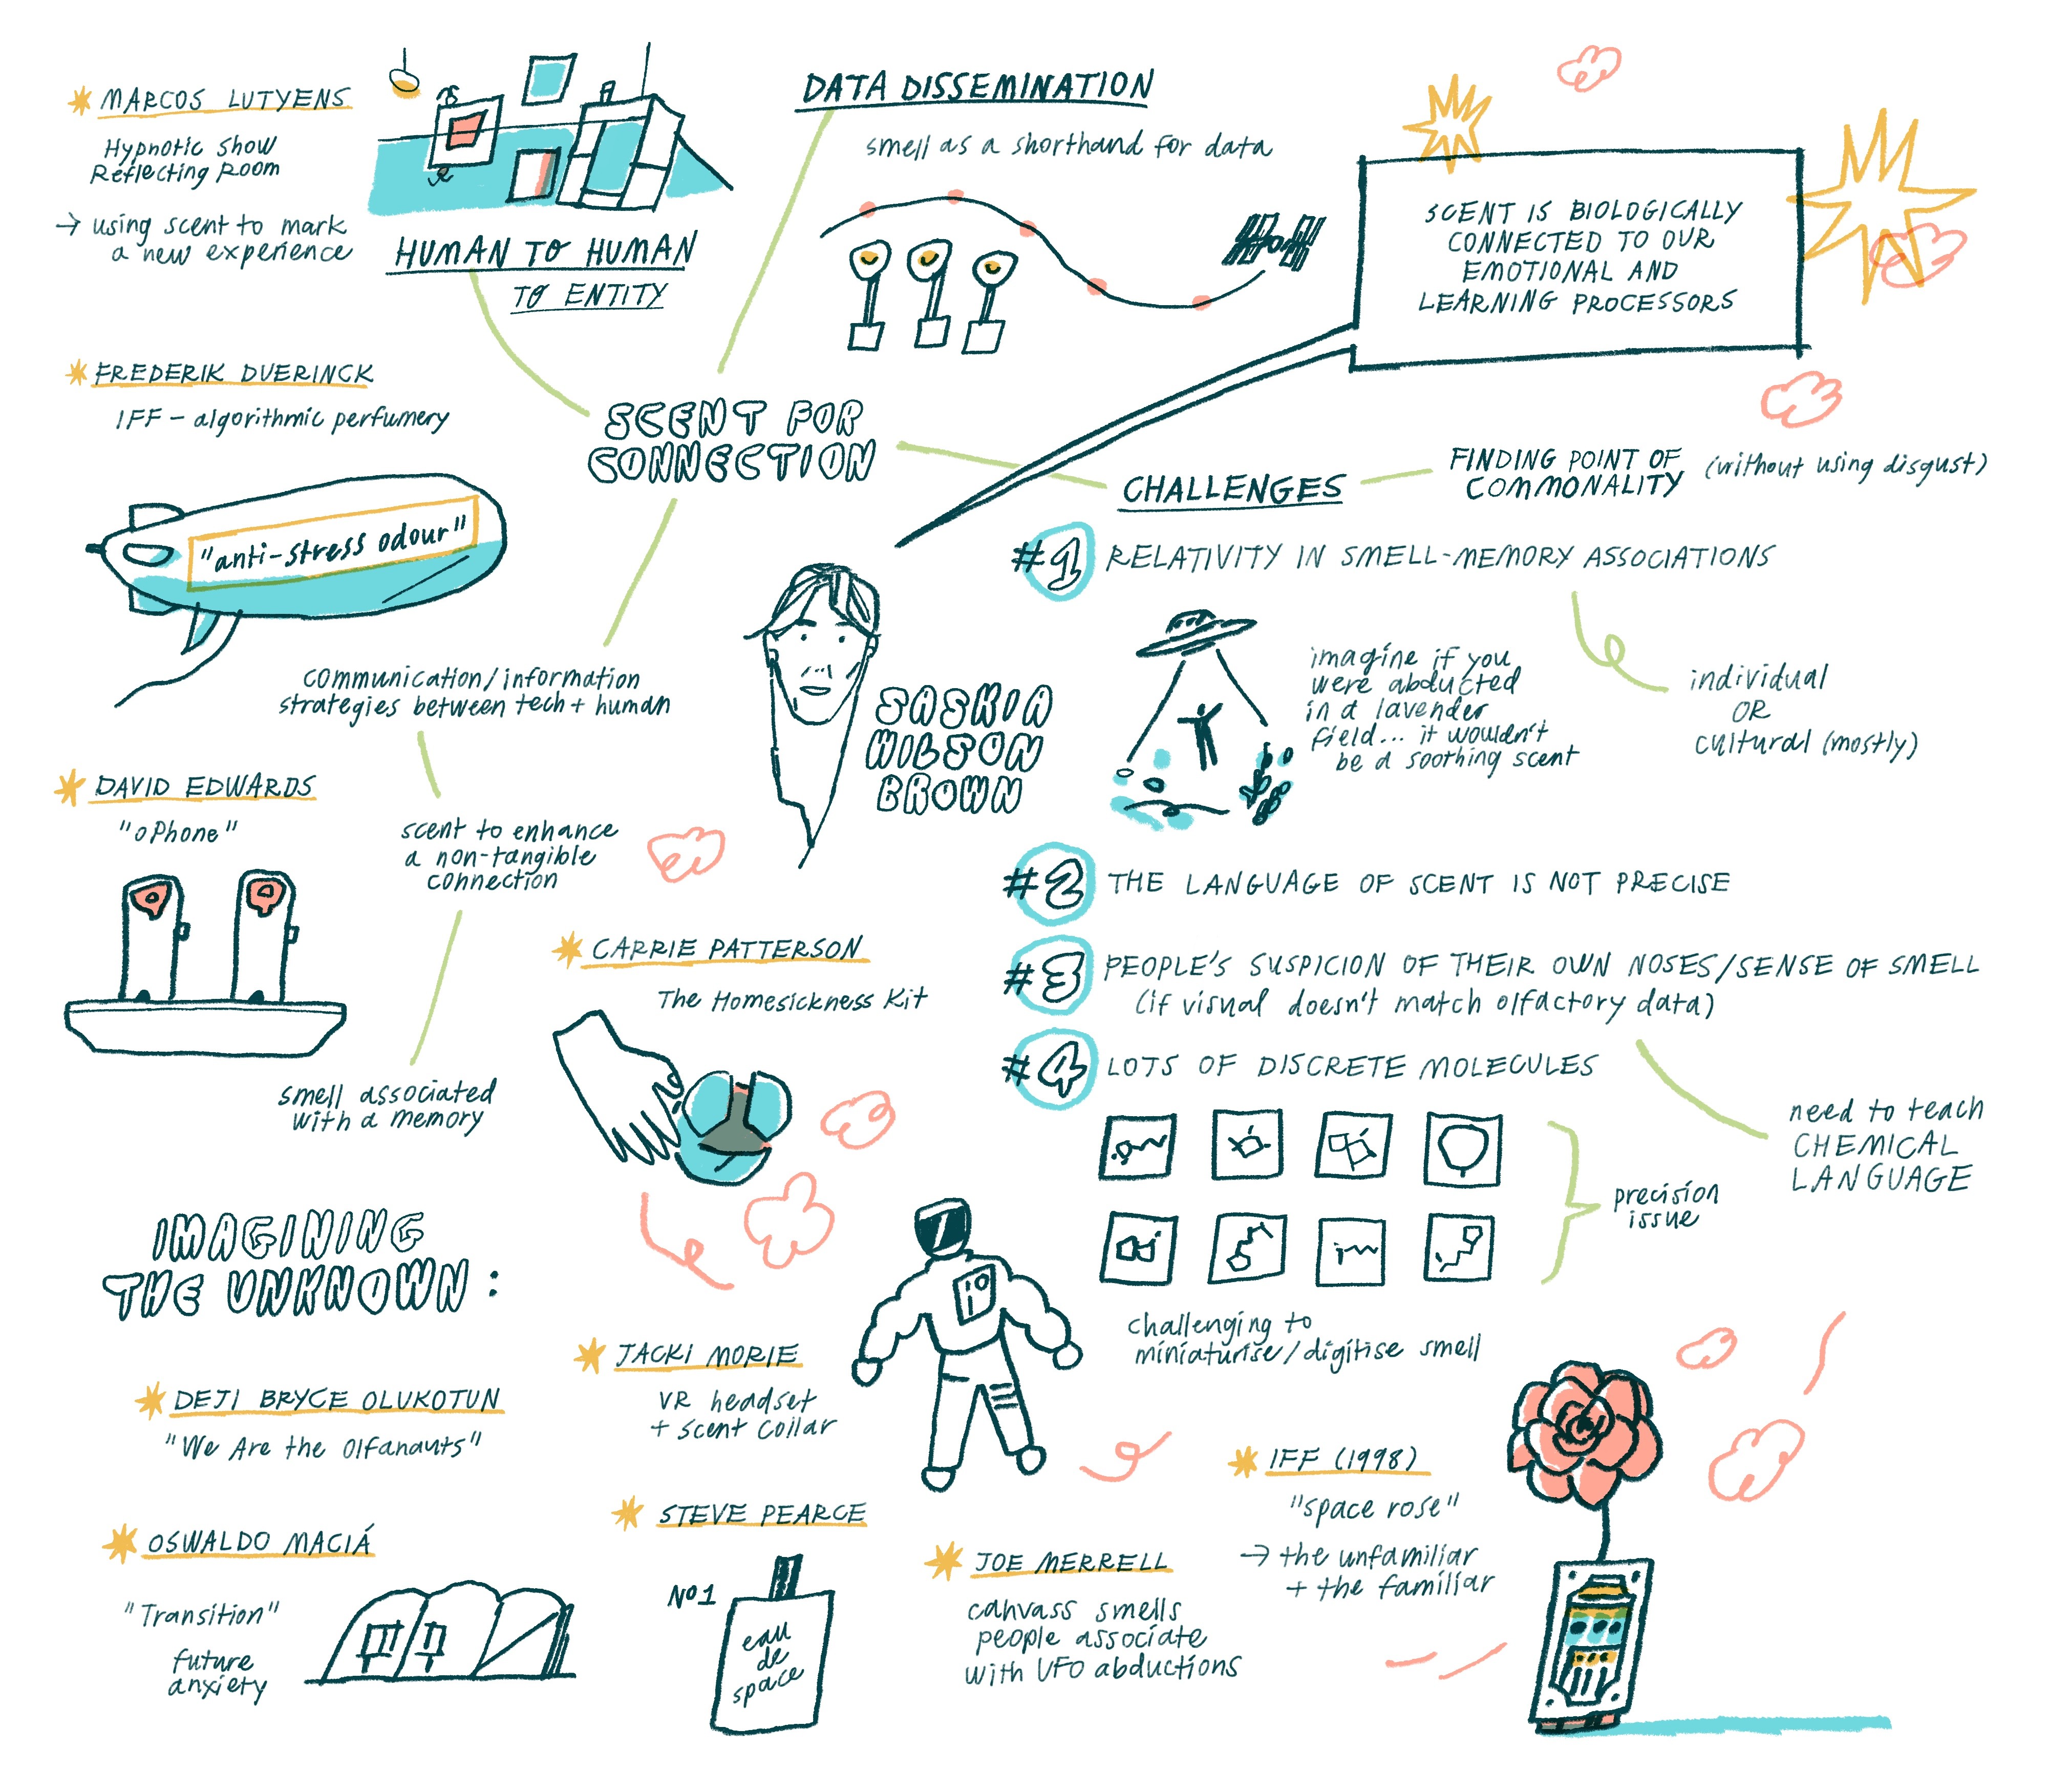 MARCOS LUTYENS
Hypnotic Show
Reflecting Room
→ using scent to mark
a new experience
HUMAN TO HUMAN
TO ENTITY
DATA DISSEMINATION
smell as a shorthand for data
SCENT IS BIOLOGICALLY
CONNECTED TO OUR
EMOTIONAL AND
LEARNING PROCESSORS
FREDERIK DUERINCK
IFF - algorithmic perfumery
"anti-stress odour"
SCENT FOR
CONNECTION
communication/information
strategies between tech + human
DAVID EDWARDS
"oPhone"
scent to enhance
a non-tangible
connection
smell associated
with a memory
CARRIE PATTERSON
The Homesickness Kit
SASKIA
WILSON
BROWN
CHALLENGES
FINDING POINT OF
COMMONALITY
(without using disgust)
#1 RELATIVITY IN SMELL-MEMORY ASSOCIATIONS
imagine if you
were abducted
in a lavender
field... it wouldn't
be a soothing scent
individual
OR
cultural (mostly)
#2 THE LANGUAGE OF SCENT IS NOT PRECISE
#3 PEOPLE'S SUSPICION OF THEIR OWN NOSES/SENSE OF SMELL
(if visual doesn't match olfactory data)
#4 LOTS OF DISCRETE MOLECULES
need to teach
CHEMICAL
LANGUAGE
precision
issue
challenging to
miniaturise/digitise smell
IMAGINING
THE UNKNOWN:
DEJI BRYCE OLUKOTUN
"We Are the Olfanauts"
OSWALDO MACIÁ
"Transition"
future
anxiety
JACKI MORIE
VR headset
+ scent collar
STEVE PEARCE
No1
eau
de
space
JOE MERRELL
canvass smells
people associate
with UFO abductions
IFF (1998)
"space rose"
→ the unfamiliar
+ the familiar